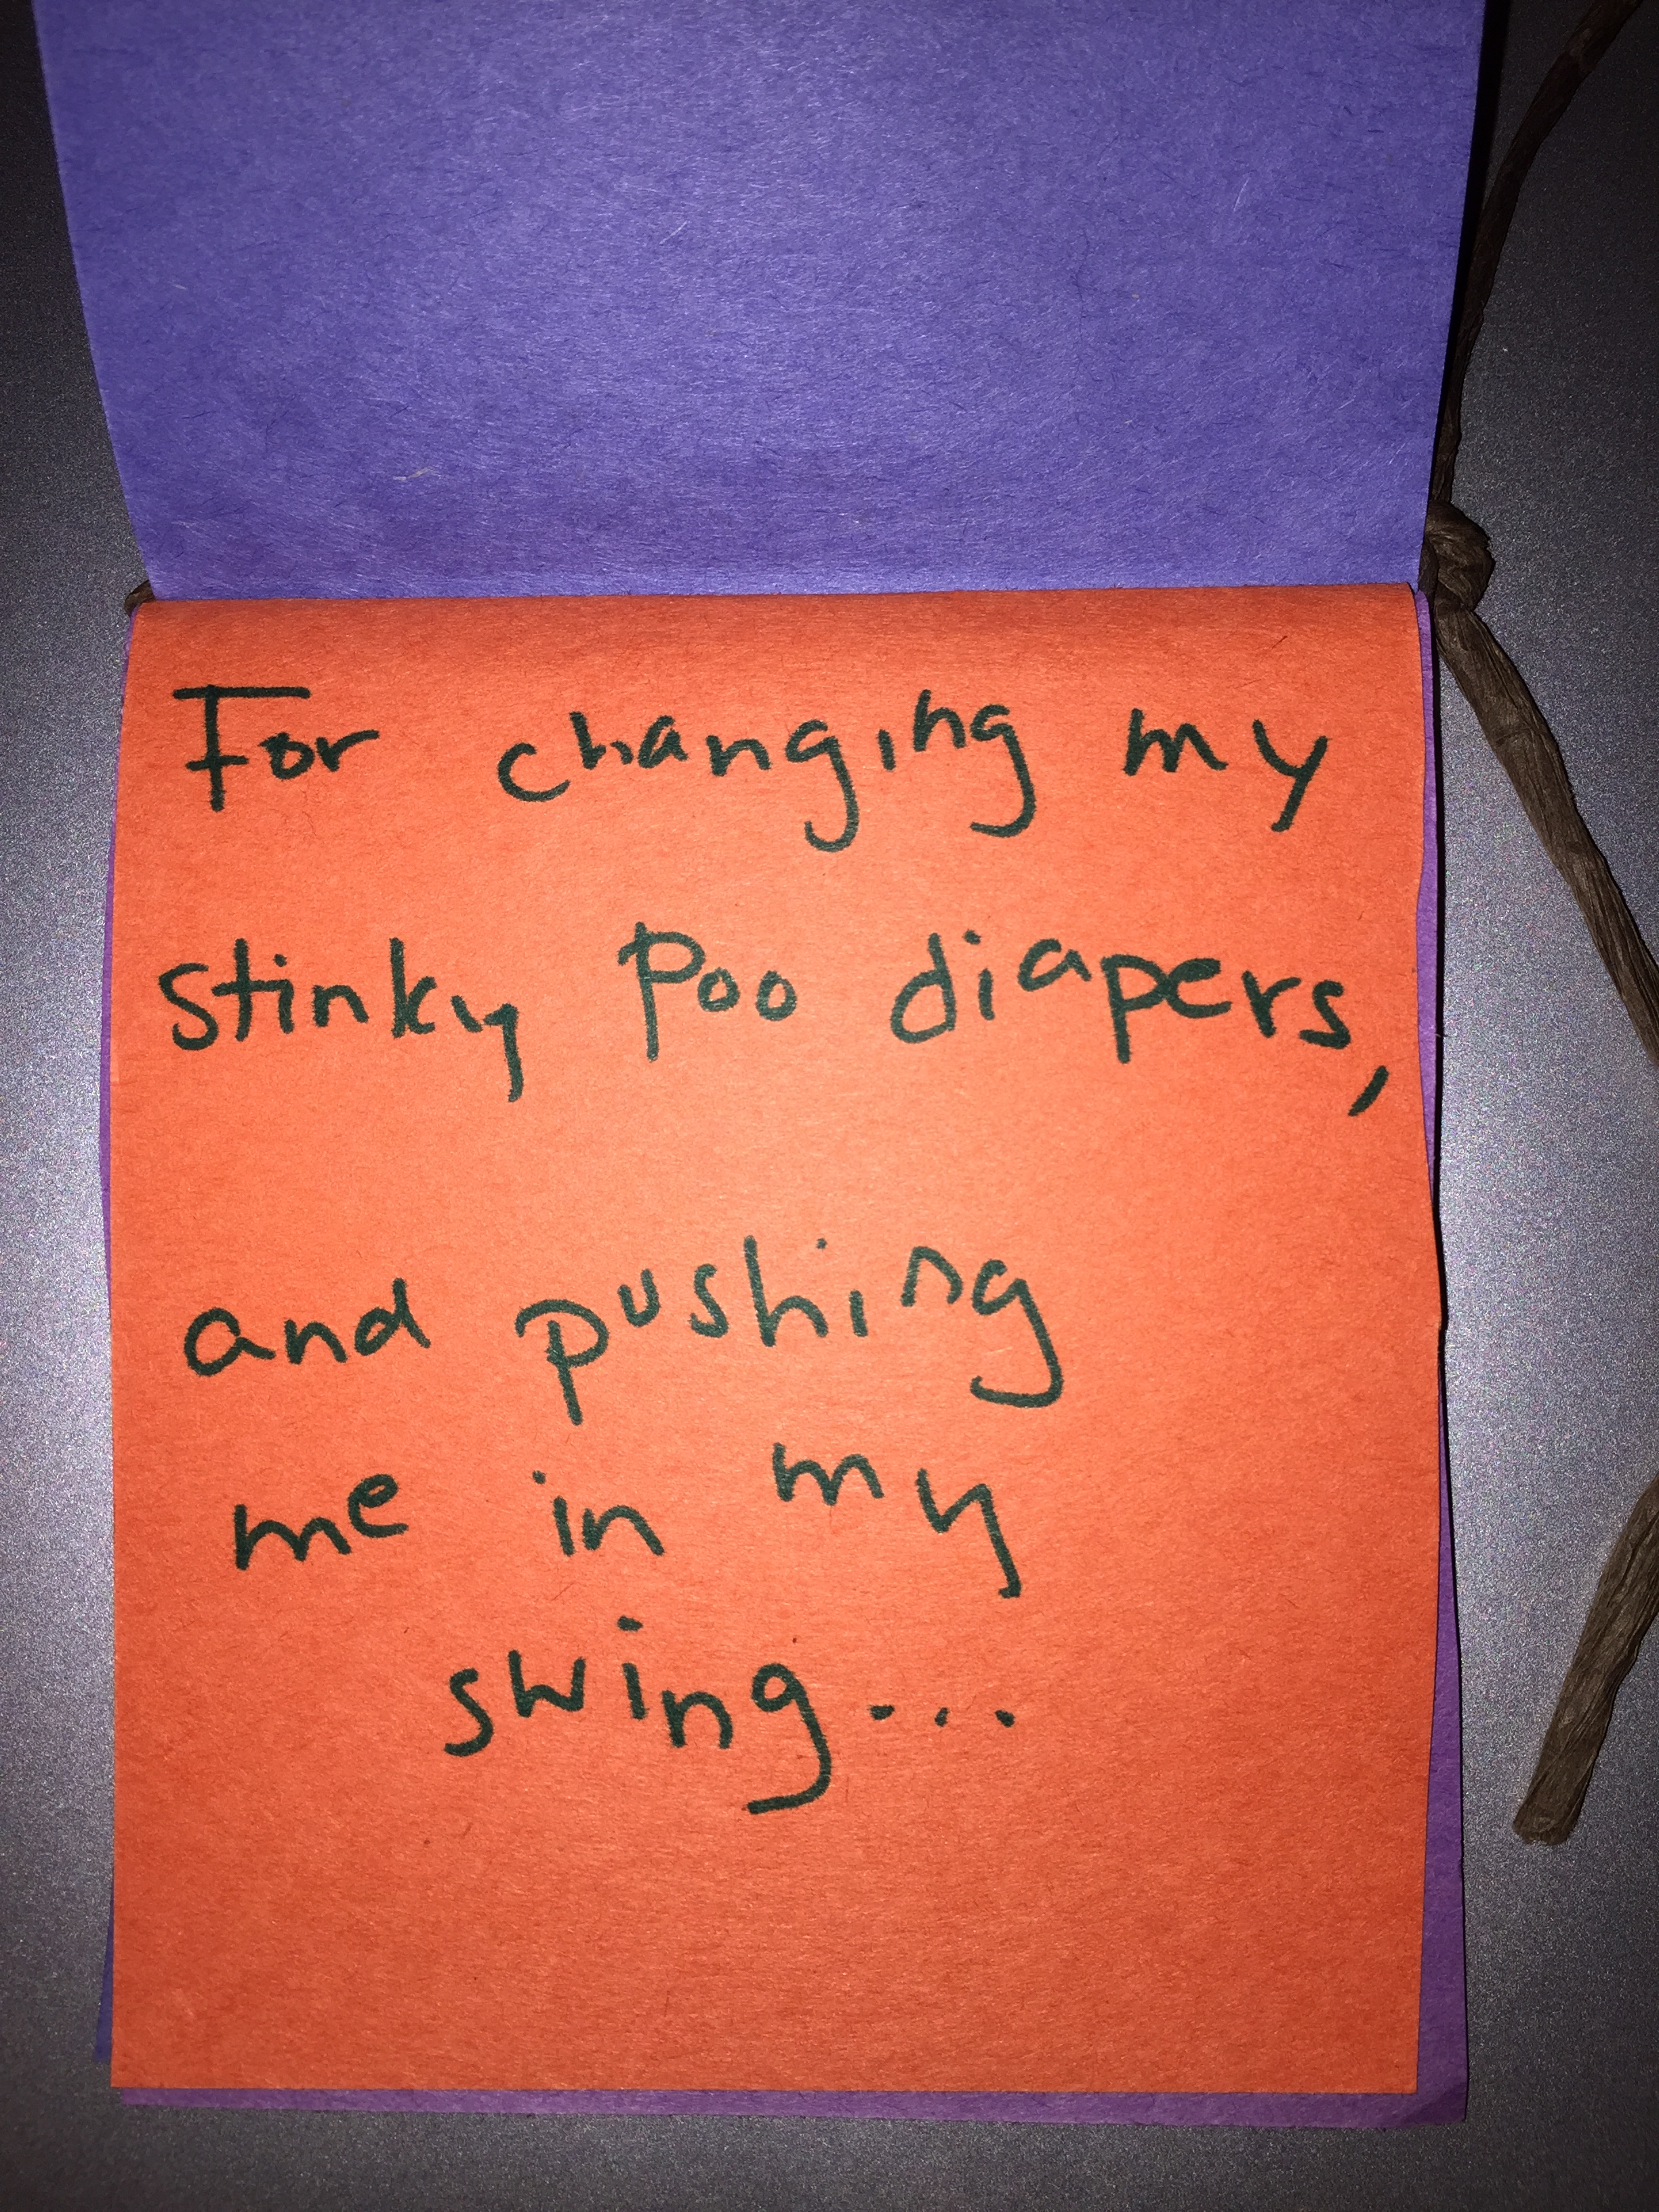 For changing my
stinky Poo diapers,
and pushing
me in my
swing...